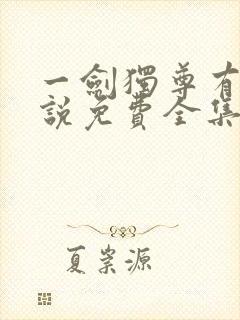 一劍獨尊有
說免費全集
夏崇源